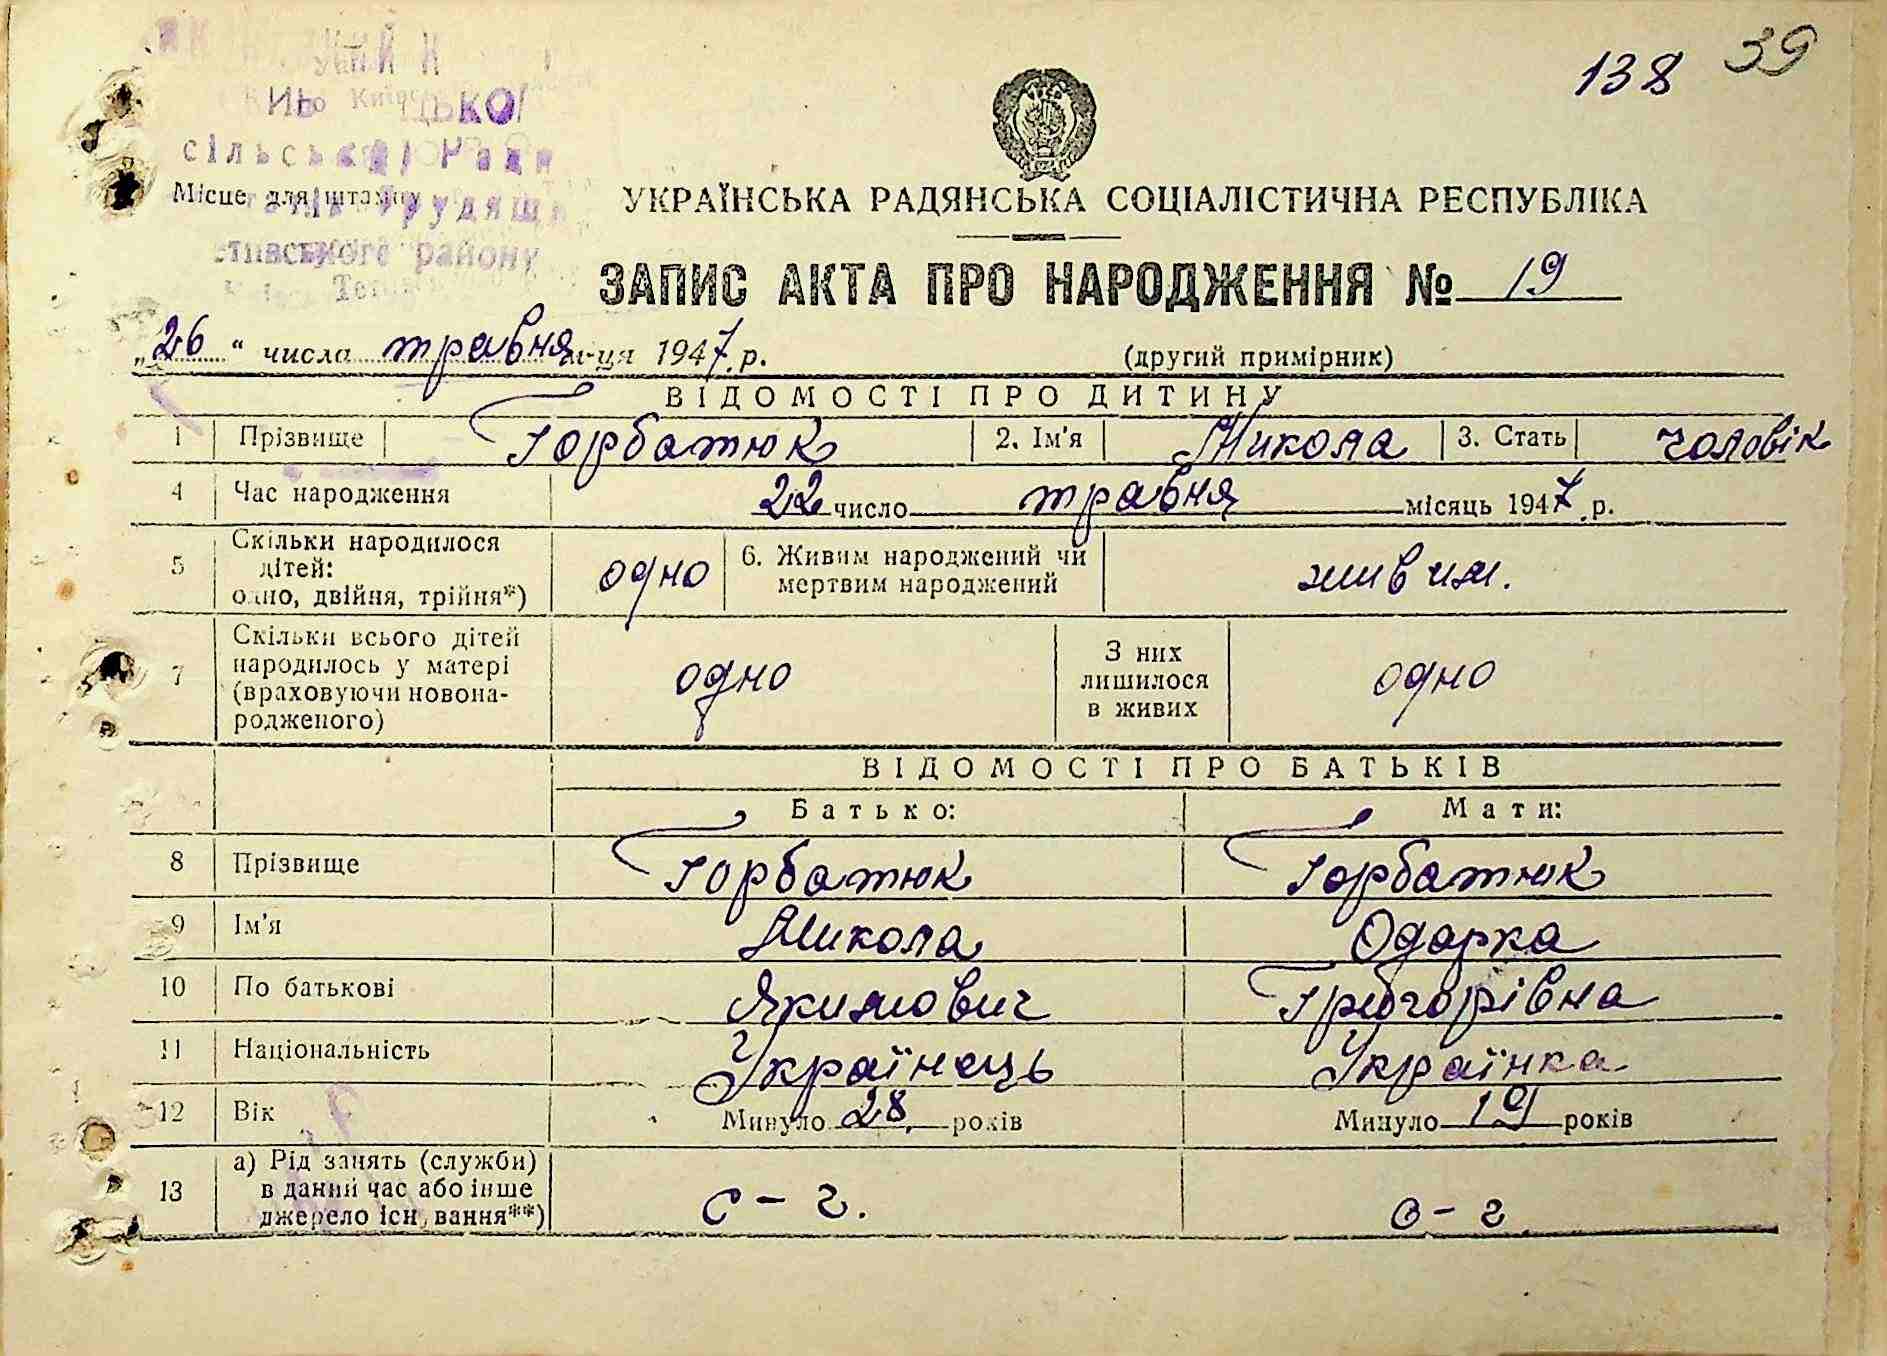 138 39
сільської Ради
Місце для штампу
району
УКРАЇНСЬКА РАДЯНСЬКА СОЦІАЛІСТИЧНА РЕСПУБЛІКА
ЗАПИС АКТА ПРО НАРОДЖЕННЯ № 19
„26“ числа травня м-ця 1947 р. (другий примірник)
ВІДОМОСТІ ПРО ДИТИНУ
1 Прізвище Горбатюк 2. Ім'я Микола 3. Стать чоловік
4 Час народження 22 число травня місяць 1947 р.
5 Скільки народилося дітей: одно, двійня, трійня*) одно 6. Живим народжений чи мертвим народжений живим.
7 Скільки всього дітей народилось у матері (враховуючи новонародженого) одно З них лишилося в живих одно
ВІДОМОСТІ ПРО БАТЬКІВ
Батько: Мати:
8 Прізвище Горбатюк Горбатюк
9 Ім'я Микола Одарка
10 По батькові Якимович Григорівна
11 Національність Українець Українка
12 Вік Минуло 28 років Минуло 19 років
13 а) Рід занять (служби) в даний час або інше джерело існування**) с-г. с-г